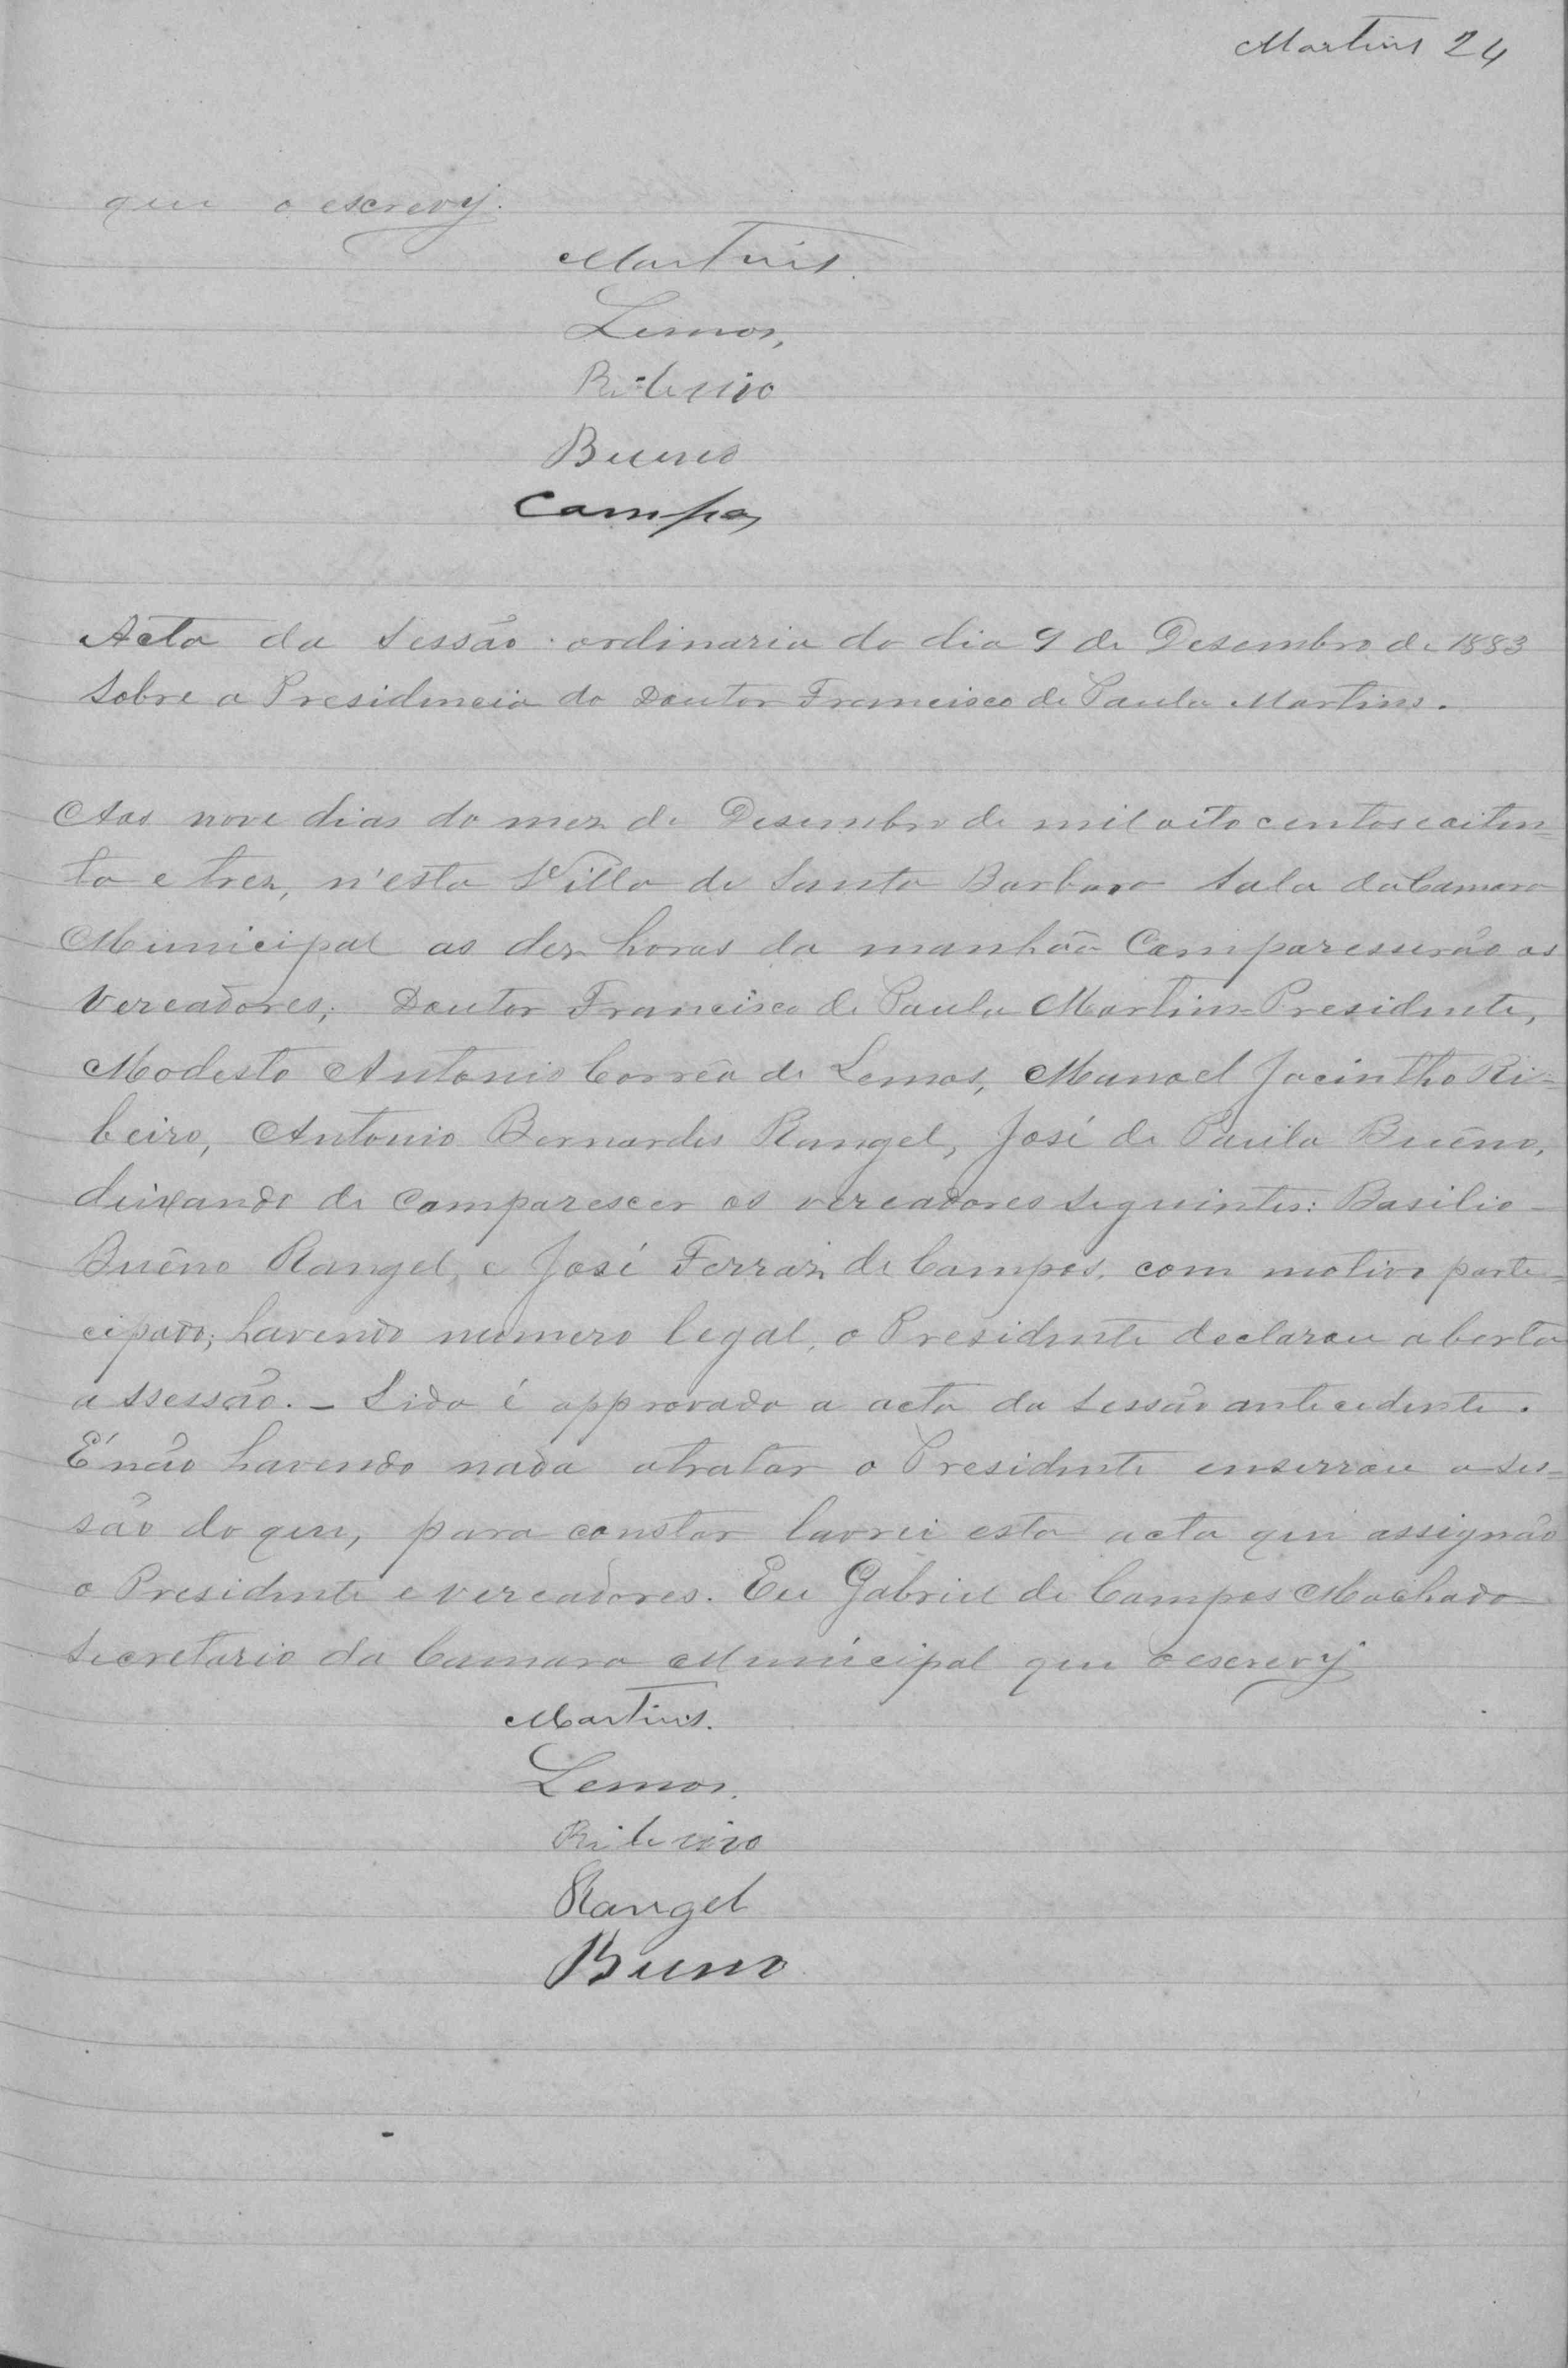 Martins 24
que o escrevy.
Martins.
Lemos,
Ribeiro
Bueno
Campos
Acta da sessão ordinaria do dia 9 de Desembro de 1883
sobre a Presidencia do Doutor Francisco de Paula Martins.
Aos nove dias do mez de Desembro de mil oito centos e oiten=
ta e trez, n'esta Villa de Santa Barbara sala da Camara
Municipal as dez horas da manhãa Comparesserão os
Vereadores; Doutor Francisco de Paula Martins=Presidente,
Modesto Antonio Corrêa de Lemos, Manoel Jacintho Ri=
beiro, Antonio Bernardes Rangel, José de Paula Buêno,
deixando de Comparescer os vereadores seguintes: Basilio
Buêno Rangel, e José Ferraz de Campos, com motivo parti=
cipado; havendo numero legal, o Presidente declarou aberta
a ssessão. - Lida é approvada a acta da sessão antecedente.
É não havendo nada atratar o Presidente enserrou a ses=
são do que, para constar lavrei esta acta que assignão
o Presidente e vereadores. Eu Gabriel de Campos Machado
secretario da Camara Municipal que o escrevy
Martins.
Lemos.
Ribeiro
Rangel
Bueno